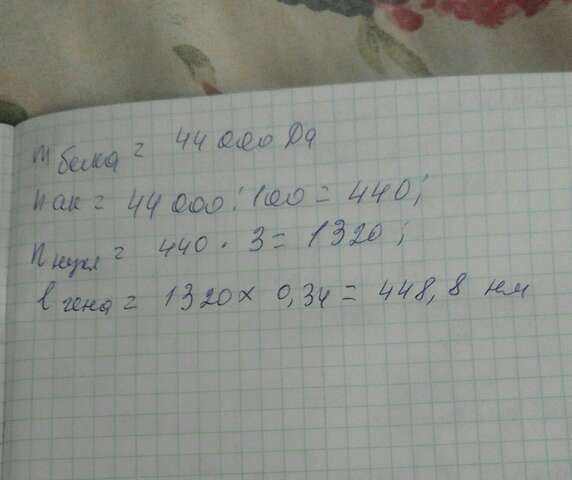 m белка = 44 000 Da
n ак = 44 000 : 100 = 440;
n нукл = 440 · 3 = 1320;
l гена = 1320 x 0,34 = 448,8 нм